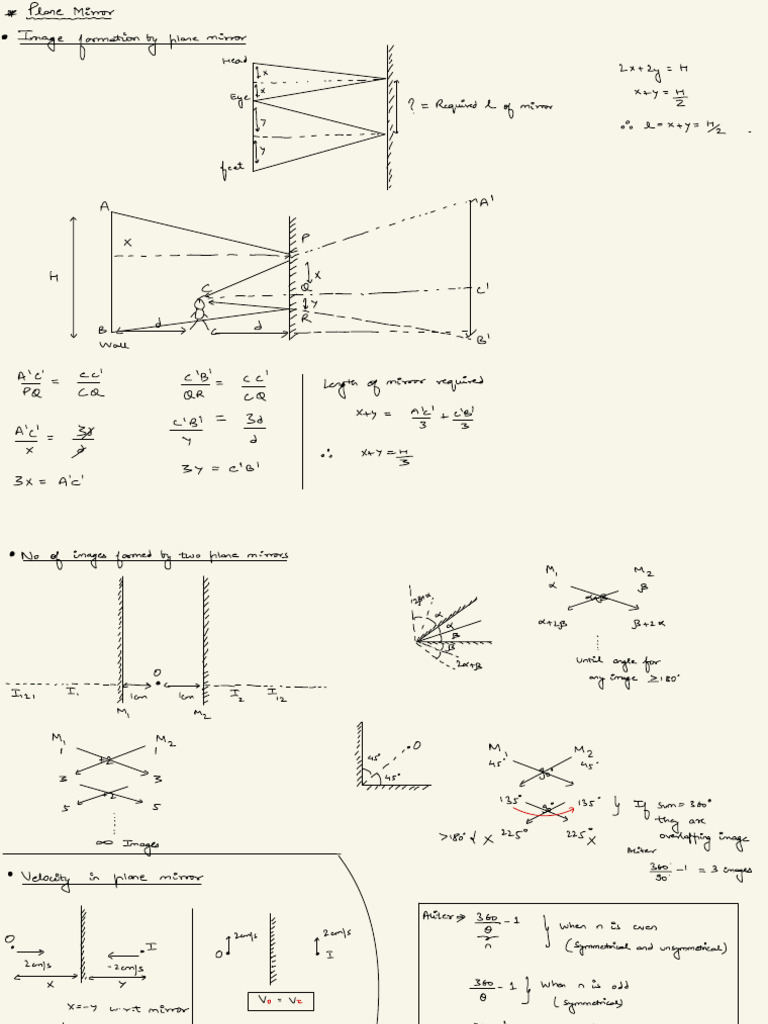 * Plane Mirror
• Image formation by plane mirror
Head
x
x
Eye
y
y
feet
? = Required l of mirror
2x+2y = H
x+y = H/2
∴ l = x+y = H/2
A
X
H
B
Wall
d
C
C
d
P
x
Q
y
R
A'
C'
B'
A'C'/PQ = CC'/CQ
A'C'/x = 3d/d
3x = A'C'
C'B'/QR = CC'/CQ
C'B'/y = 3d/d
3y = C'B'
Length of mirror required
x+y = A'C'/3 + C'B'/3
∴ x+y = H/3
• No of images formed by two plane mirrors
I121 I1 1cm O 1cm I2 I12
M1 M2
M1 M2
1 1
+2
3 3
+2
5 5
∞ Images
α
α
β
β
2α+β
M1 M2
α β
α+β
α+2β β+2α
Until angle for
any image ≥180°
45°
45°
O
M1 M2
45° 45°
90°
135° 135°
90°
>180° ↲ X 225° 225° X
} If sum = 360°
they are
overlapping image
Aliter
360°/90° - 1 = 3 images
• Velocity in plane mirror
O
2cm/s
x
I
-2cm/s
y
x=-y w.r.t mirror
O 2cm/s
2cm/s I
Vo = VI
Aliter → 360/θ - 1 } When n is even
n (Symmetrical and unsymmetrical)
360/θ - 1 } When n is odd
(Symmetrical)